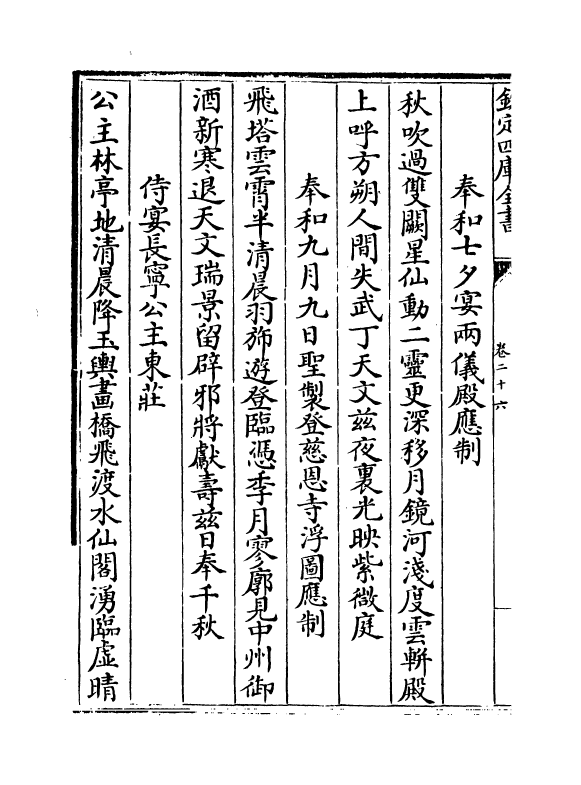 欽定四庫全書
卷二十六
奉和七夕宴兩儀殿應制
秋吹過雙闕星仙動二靈更深移月鏡河淺度雲軿殿
上呼方朔人間失武丁天文兹夜裏光映紫微庭
奉和九月九日聖製登慈恩寺浮圖應制
飛塔雲霄半清晨羽斾遊登臨憑季月寥廓見中州御
酒新寒退天文瑞景留辟邪將獻壽兹日奉千秋
侍宴長寧公主東莊
公主林亭地清晨降玉輿畫橋飛渡水仙閣湧臨虛晴